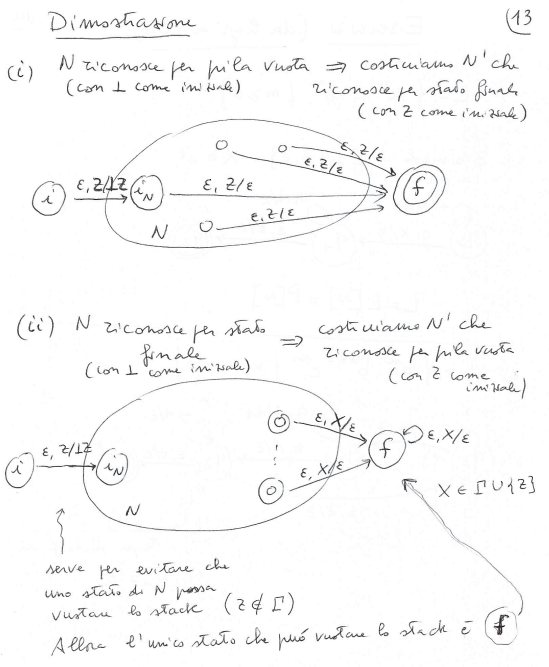 Dimostrazione
13
(i) N riconosce per pila vuota ⇒ costruiamo N' che
(con ⊥ come iniziale) riconosce per stato finale
(con Z come iniziale)
ε, Z/ε
ε, Z/ε
i ε, Z/⊥Z i_N ε, Z/ε f
ε, Z/ε
N
(ii) N riconosce per stato finale ⇒ costruiamo N' che
(con ⊥ come iniziale) riconosce per pila vuota
(con Z come iniziale)
ε, X/ε
i ε, Z/⊥Z i_N f ε, X/ε
ε, X/ε
X ∈ Γ ∪ {Z}
N
serve per evitare che
uno stato di N possa
vuotare lo stack (Z ∉ Γ)
Allora l'unico stato che può vuotare lo stack è f